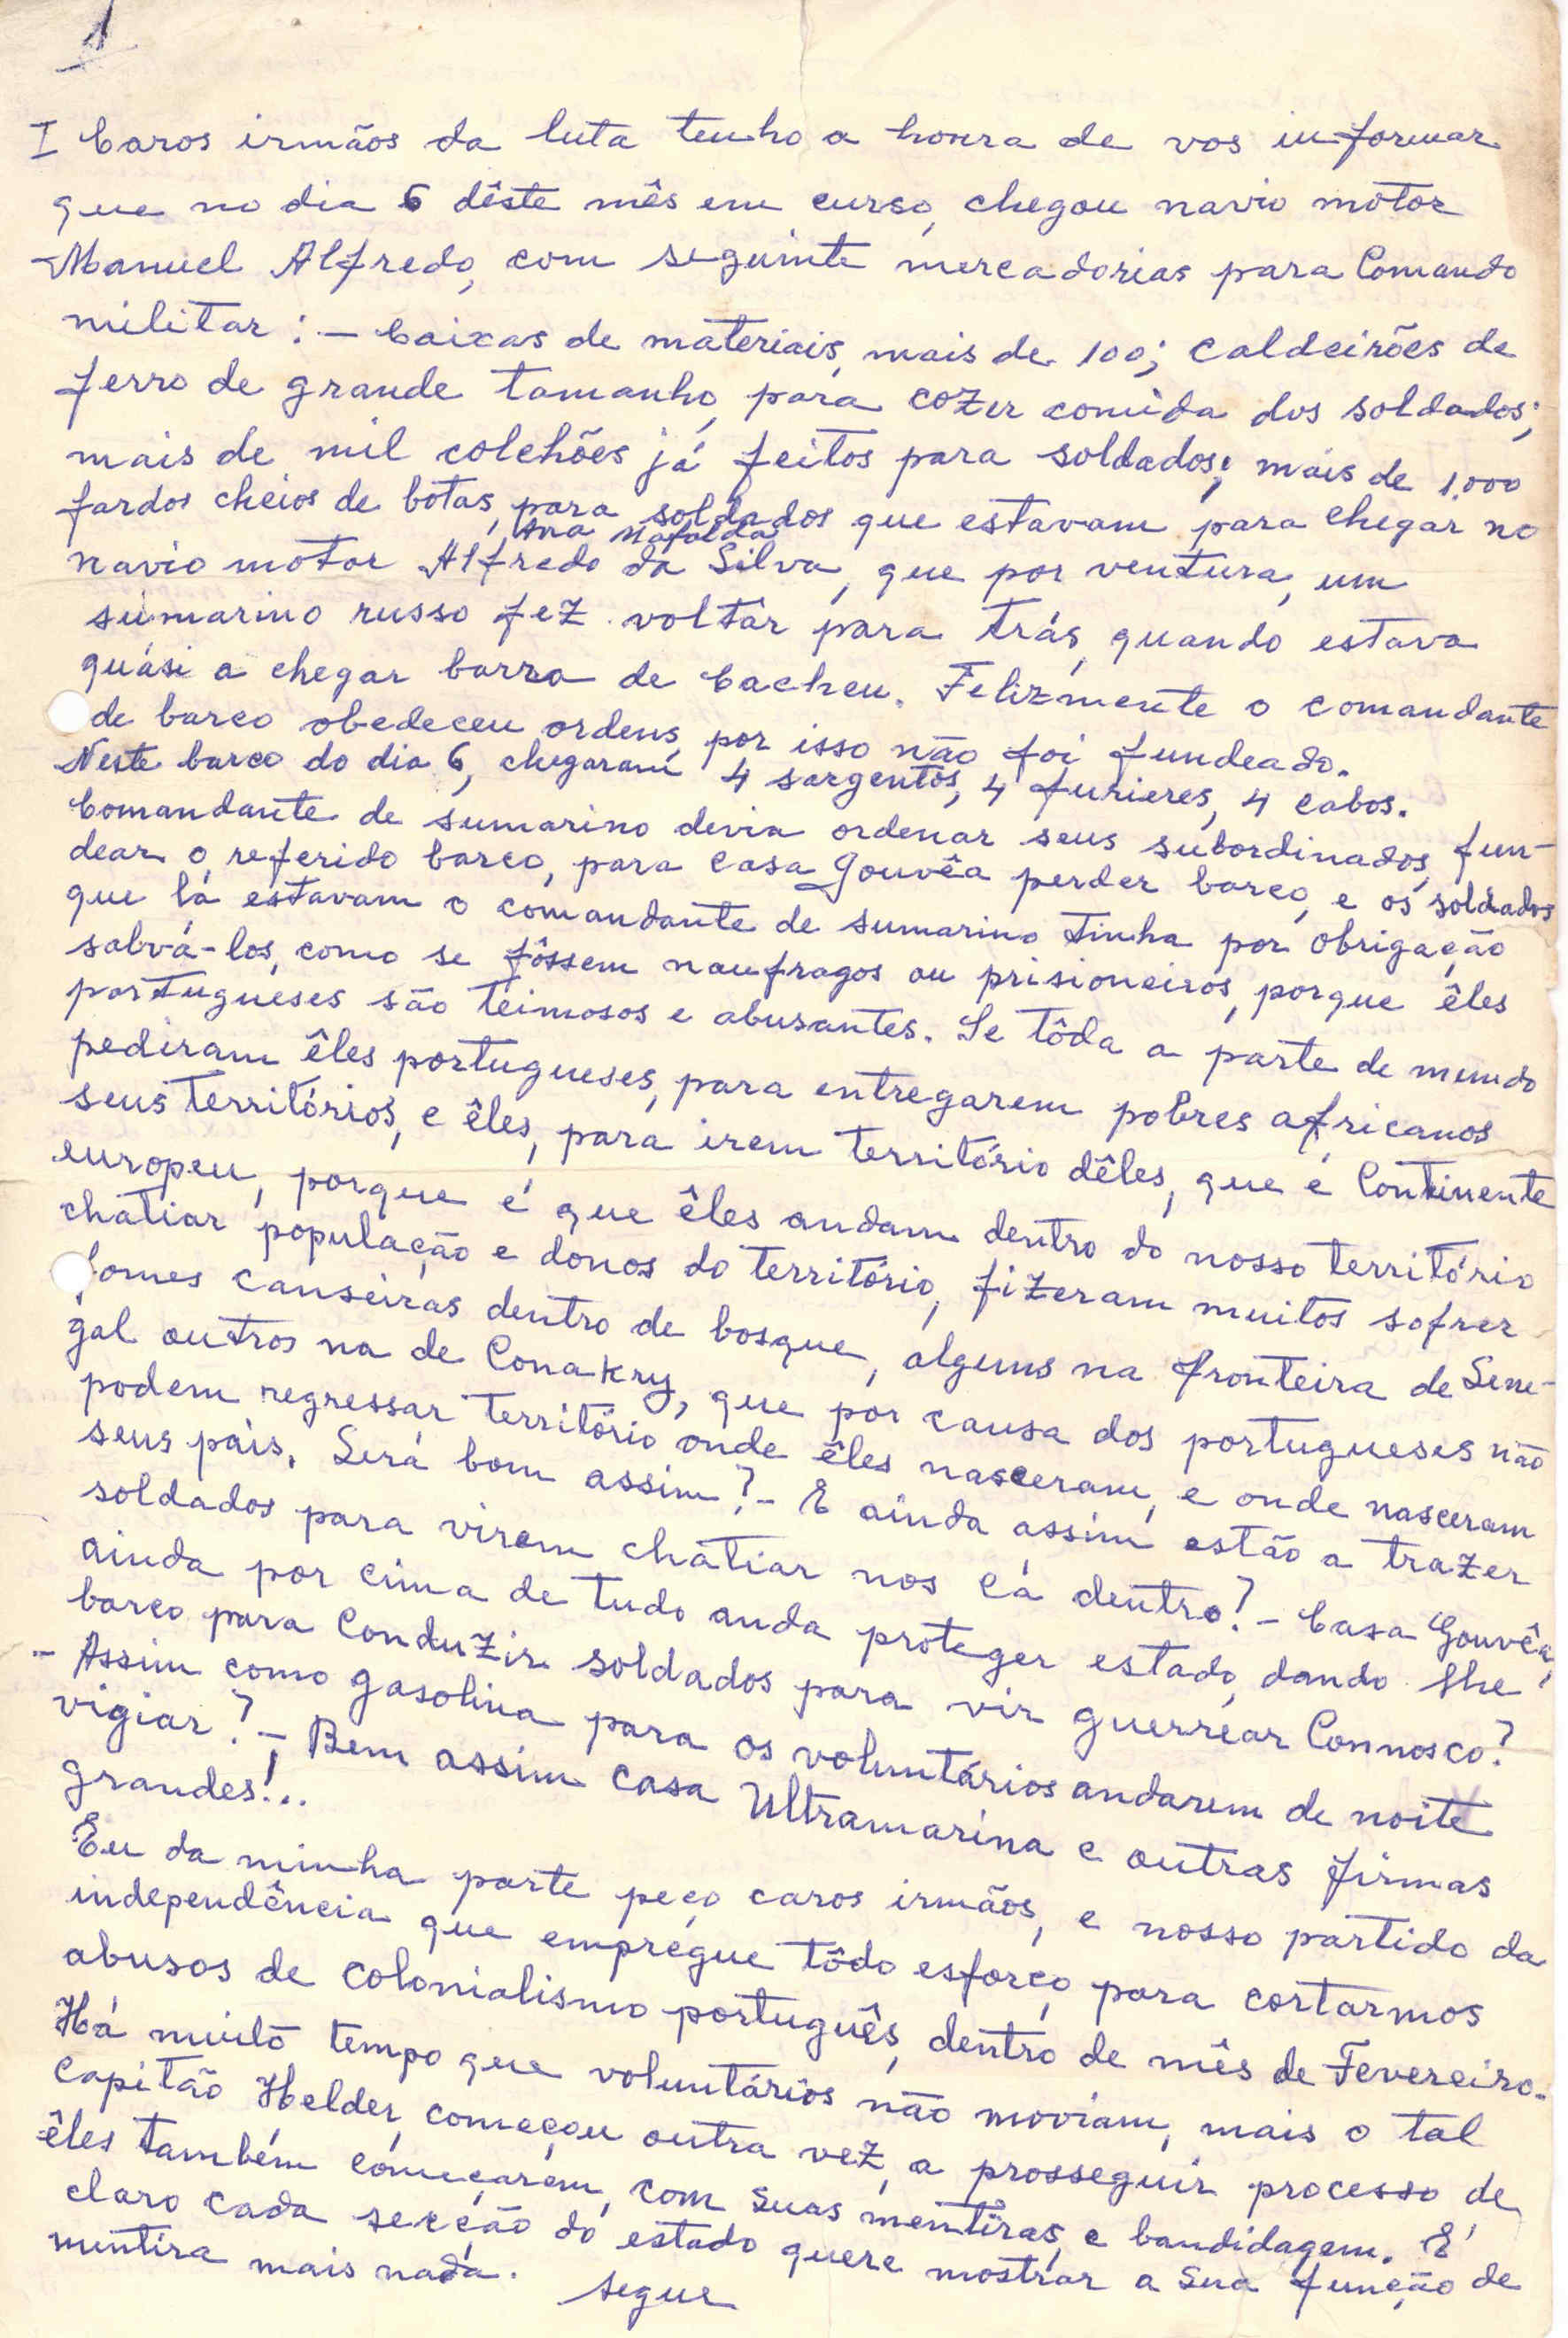 1
I Caros irmãos da luta tenho a honra de vos informar
que no dia 6 dêste mês em curso, chegou navio motor
Manuel Alfredo, com seguinte mercadorias para Comando
militar: - Caixas de materiais, mais de 100; caldeirões de
ferro de grande tamanho, para cozer comida dos soldados;
mais de mil colchões já feitos para soldados; mais de 1.000
fardos cheios de botas, para soldados que estavam para chegar no
Ana Mafalda
navio motor Alfredo da Silva, que por ventura, um
sumarino russo fez voltar para trás, quando estava
quási a chegar barra de Cacheu. Felizmente o comandante
de barco obedeceu ordens, por isso não foi fundeado.
Neste barco do dia 6, chegaram 4 sargentos, 4 furieres, 4 cabos.
Comandante de sumarino devia ordenar seus subordinados, fun-
dear o referido barco, para casa Gouvêa perder barco, e os soldados
que lá estavam o comandante de sumarino tinha por obrigação
salvá-los, como se fôssem naufragos ou prisioneiros, porque êles
portugueses são teimosos e abusantes. Se tôda a parte de mundo
pediram êles portugueses, para entregarem pobres africanos
seus territórios, e êles, para irem território dêles, que é Continente
europeu, porque é que êles andam dentro do nosso território
chatiar população e donos do território, fizeram muitos sofrer
fomes canseiras dentro de bosque, alguns na fronteira de Sene-
gal outros na de Conakry, que por causa dos portugueses não
podem regressar território onde êles nasceram, e onde nasceram
seus pais. Será bom assim? - E ainda assim estão a trazer
soldados para virem chatiar nos cá dentro? - Casa Gouvêa,
ainda por cima de tudo anda proteger estado, dando lhe
barco para Conduzir soldados para vir guerrear Connosco?
- Assim como gasolina para os voluntários andarem de noite
vigiar? - Bem assim casa Ultramarina e outras firmas
grandes!..
Eu da minha parte peço caros irmãos, e nosso partido da
independência que empregue tôdo esforço, para cortarmos
abusos de colonialismo português, dentro de mês de Fevereiro.
Há muito tempo que voluntários não moviam, mais o tal
Capitão Helder, começou outra vez, a prosseguir processo de
êles também começarem, com suas mentiras, e bandidagem. É
claro cada secção do estado quere mostrar a sua função de
mentira mais nada.
segue